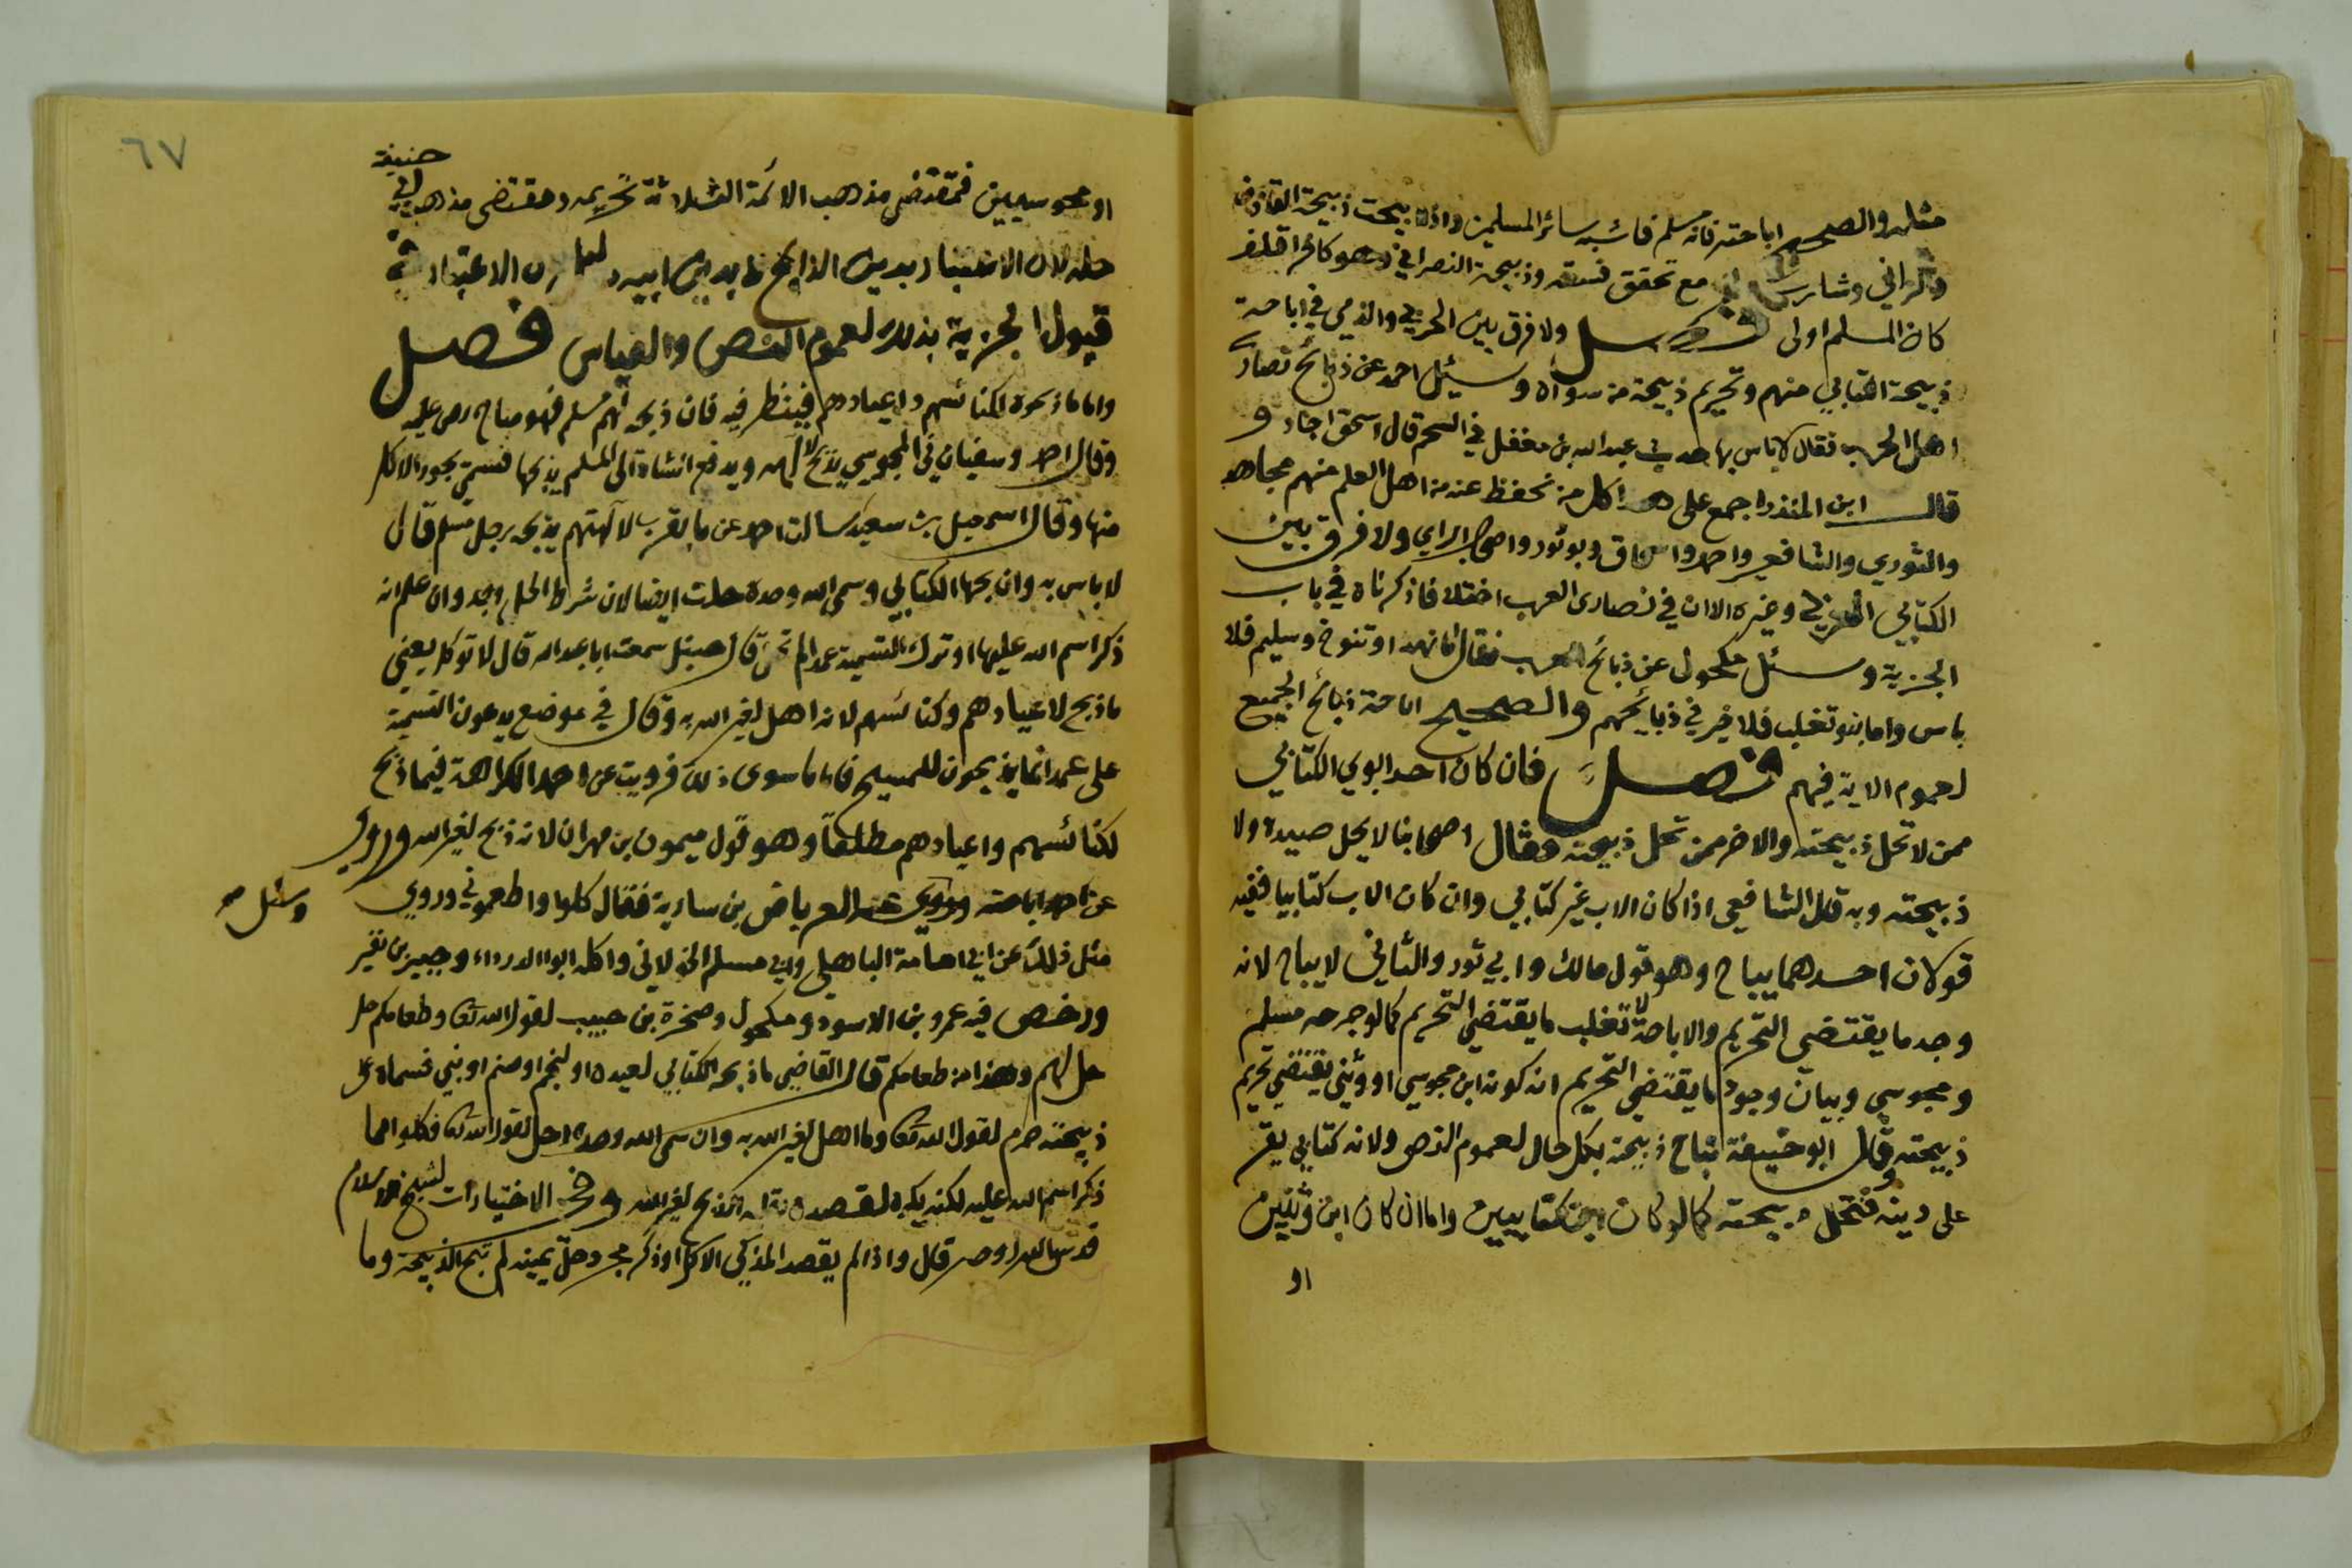 مثله والصحيح اباحته فانه مسلم فاشبه سائر المسلمين واذا ابيحت ذبيحة القاذف
والزاني وشارب الخمر مع تحقق فسقه وذبيحة النصراني وهو كافر اقلف
كان المسلم اولى فصل ولا فرق بين الحربي والذمي في اباحة
ذبيحة الكتابي منهم وتحريم ذبيحة من سواه وسئل احمد عن ذبائح نصارى
اهل الحرب فقال لا باس بها حديث عبدالله بن مغفل في الشحم قال اسحق اجاد و
قال ابن المنذر اجمع على هذا كل من نحفظ عنه من اهل العلم منهم مجاهد
والثوري والشافعي واحمد واسحاق وابوثور واصحاب الراي ولا فرق بين
الكتابي العربي وغيره الا ان في نصارى العرب اختلافا ذكرناه في باب
الجزية وسئل مكحول عن ذبائح العرب فقال اما بهرا وتنوخ وسليم فلا
باس واما بنو تغلب فلا خير في ذبائحهم والصحيح اباحة ذبائح الجميع
لعموم الاية فيهم فصل فان كان احد ابوي الكتابي
ممن لا تحل ذبيحته والاخر ممن تحل ذبيحته فقال اصحابنا لا يحل صيده ولا
ذبيحته وبه قال الشافعي اذا كان الاب غير كتابي وان كان الاب كتابيا ففيه
قولان احدهما يباح وهو قول مالك وابي ثور والثاني لا يباح لانه
وجد ما يقتضي التحريم والاباحة فغلب ما يقتضي التحريم كما لو جرحه مسلم
ومجوسي وبيان وجود ما يقتضي التحريم ان كونه ابن مجوسي او وثني يقتضي تحريم
ذبيحته وقال ابو حنيفة تباح ذبيحته بكل حال لعموم النص ولانه كتابي يقر
على دينه فتحل ذبيحته كما لو كان ابن كتابيين واما ان كان ابن وثنيين
او
٦٧
حنيفة
او مجوسيين فمقتضى مذهب الائمة الثلاثة تحريمه ومقتضى مذهب ابي
حله لان الاعتبار بدين الذابح لا بدين ابيه بدليل ان الاعتبار في
قبول الجزية بذلك لعموم النص والقياس فصل
واما ما ذبحوه لكنائسهم واعيادهم فينظر فيه فان ذبحه لهم مسلم فهو مباح نص عليه
وقال احمد وسفيان في المجوسي يذبح لالهه ويدفع الشاة الى المسلم يذبحها فيسمي يجوز الاكل
منها وقال اسمعيل بن سعيد سالت احمد عن ما يقرب لالهتهم يذبحه رجل مسلم قال
لا باس به وان ذبحها الكتابي وسمى الله وحده حلت ايضا لان شرط الحل وجد وان علم انه
ذكر اسم الله عليها او ترك التسمية عمدا لم تحل قال حنبل سمعت ابا عبدالله قال لا توكل يعني
ما ذبح لاعيادهم وكنائسهم لانه اهل لغير الله به وقال في موضع يدعون التسمية
على عمد انما يذبحون للمسيح فاما ما سوى ذلك فرويت عن احمد الكراهة فيما ذبح
لكنائسهم واعيادهم مطلقا وهو قول ميمون بن مهران لانه ذبح لغير الله وروي
عن احمد اباحته وسئل عنه العرباض بن سارية فقال كلوا واطعموني وروي
وسئل صح
مثل ذلك عن ابي امامة الباهلي وابي مسلم الخولاني واكله ابوا الدرداء وجبير بن نفير
ورخص فيه عمرو بن الاسود ومكحول وضمرة بن حبيب لقول الله تعالى وطعامكم حل
حل لهم وهذا من طعامكم قال القاضي ما ذبحه الكتابي لعيده او لنجم او صنم او نبي فسماه على
ذبيحته حرم لقول الله تعالى وما اهل لغير الله به وان سمى الله وحده احل لقول الله تعالى فكلوا مما
ذكر اسم الله عليه لكنه يكره لقصده بقلبه الذبح لغير الله وفي الاختيارات لشيخ الاسلام
قدس الله روحه قال واذا لم يقصد المذكي الاكل او ذكر مجرد حل يمينه لم تبح الذبيحة وما